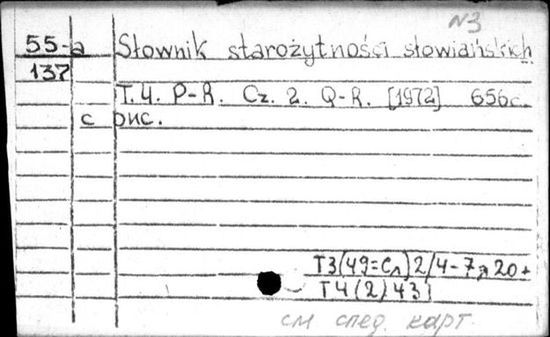 N3
55-a Słownik starożytności słowiańskich
137
T.4. P-R. Cz. 2. Q-R. [1972] 656с.
с рис.
Т3(49=Сл)2/4-7я20+
Т4(2)431
см след. карт.